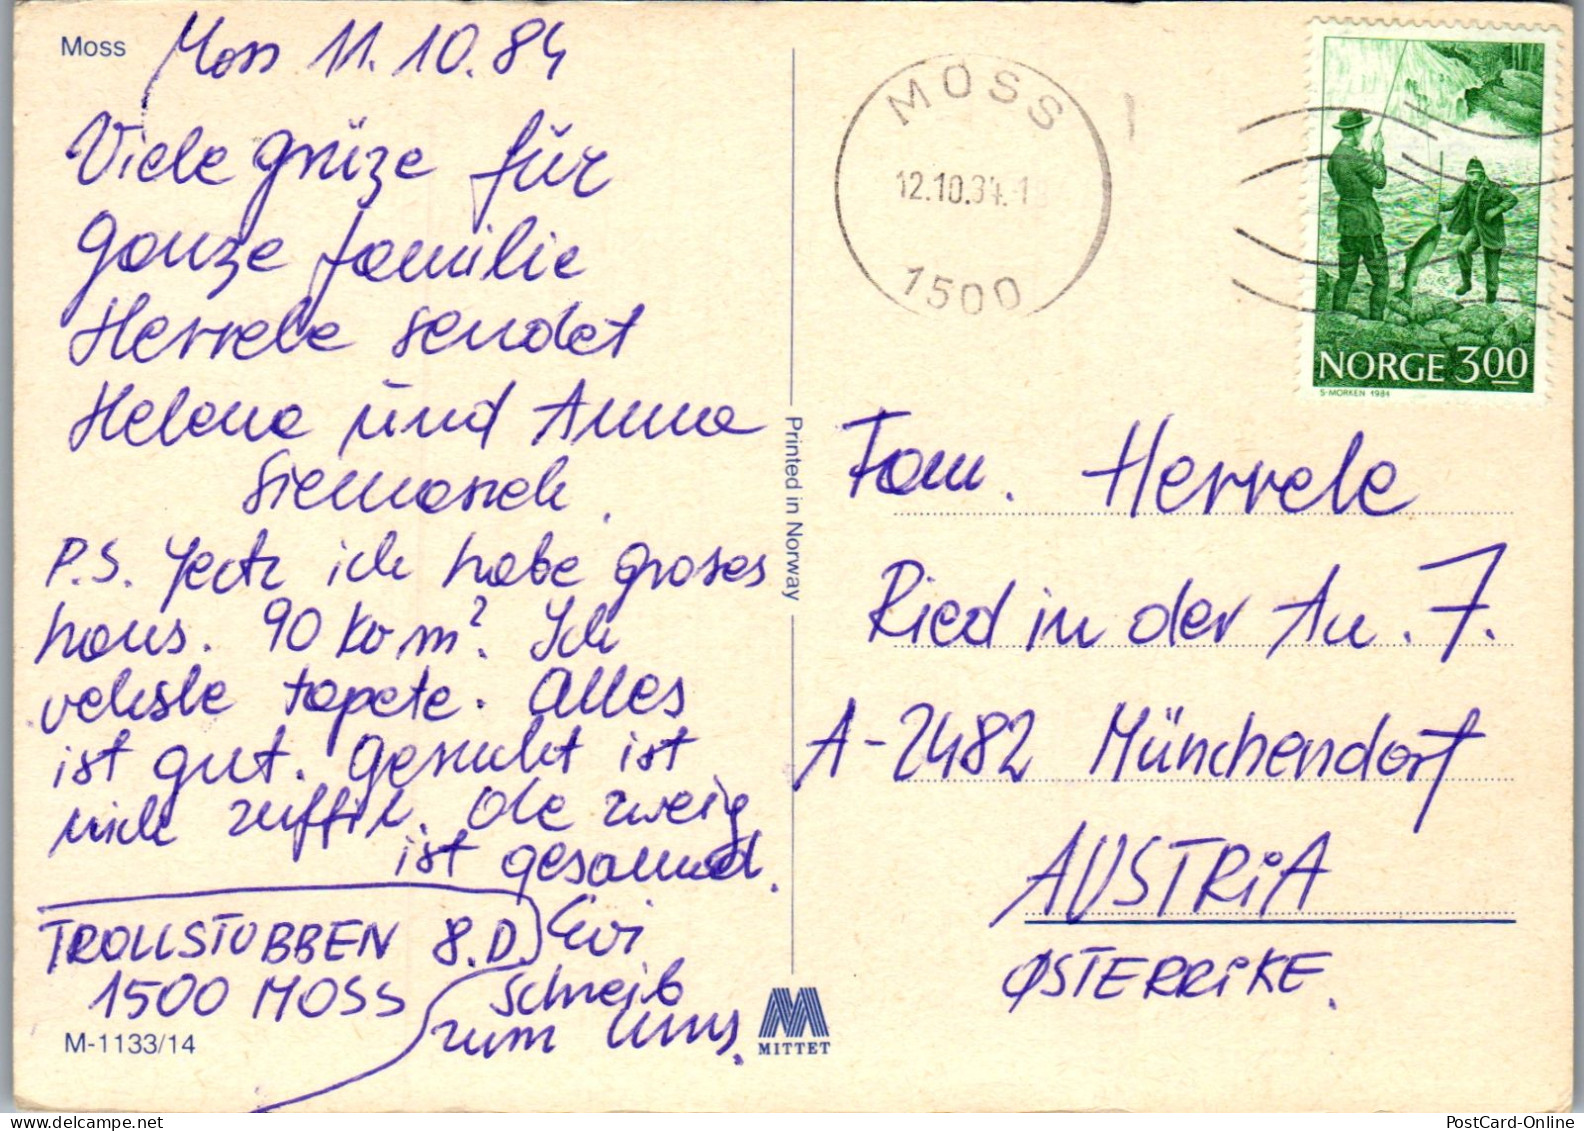 Moss
Moss 11.10.84
Viele grüze für
ganze familie
Herrele sendet
Helena und Anna
Siemaszek.
P.S. Jectz ich habe groses
haus. 90 ko m². Ich
veksle tapete. Alles
ist gut. Gesucht ist
nich zuffil. Ole zweig
ist gesaund.
TROLLSTUBBEN 8.D.
1500 MOSS
Evi
Schreib
zum Uns.
M-1133/14
Printed in Norway
MITTET
MOSS
12.10.84.-1
1500
NORGE 300
S·MORKEN 1984
Fam. Herrele
Ried in der Au. 7.
A-2482 Münchendorf
AUSTRiA
ØSTERRiKE.
PostCard-Online